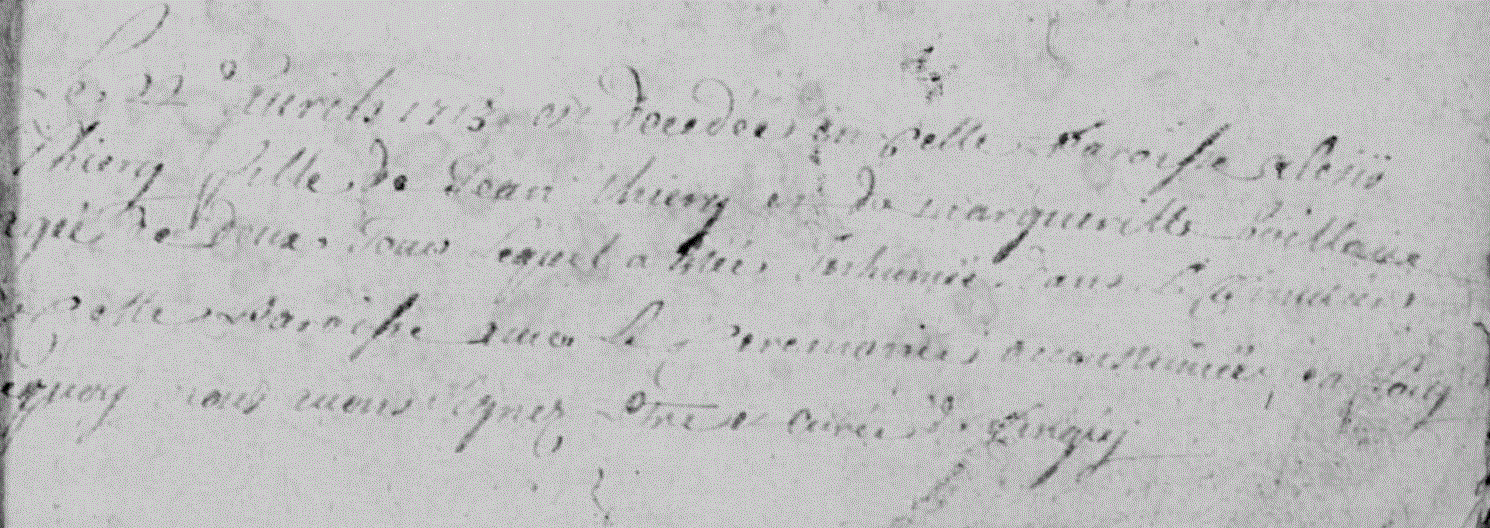 Le 22 Avril 1713 est decedee en cette Paroisse
Thiery fille de Jean Thiery et de margueritte
agée de deux jours lequel a été inhumée dans le Cimetiere
de cette Paroisse avec les ceremonies accoutumées, en foy
de quoy nous avons signez curé de